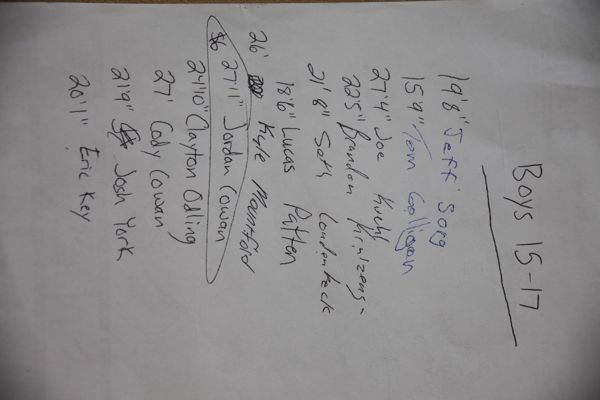 Boys 15-17
19'8" Jeff Sorg
15'9" Tom Colligan
27'4" Joe Kuehl
22'5" Brandon
21'8" Seth Loudenback
18'6" Lucas Patten
26' Kyle Manifold
27'1" Jordan Cowan
24'10" Clayton Odling
27' Cody Cowan
21'9" Josh York
20'1" Eric Key